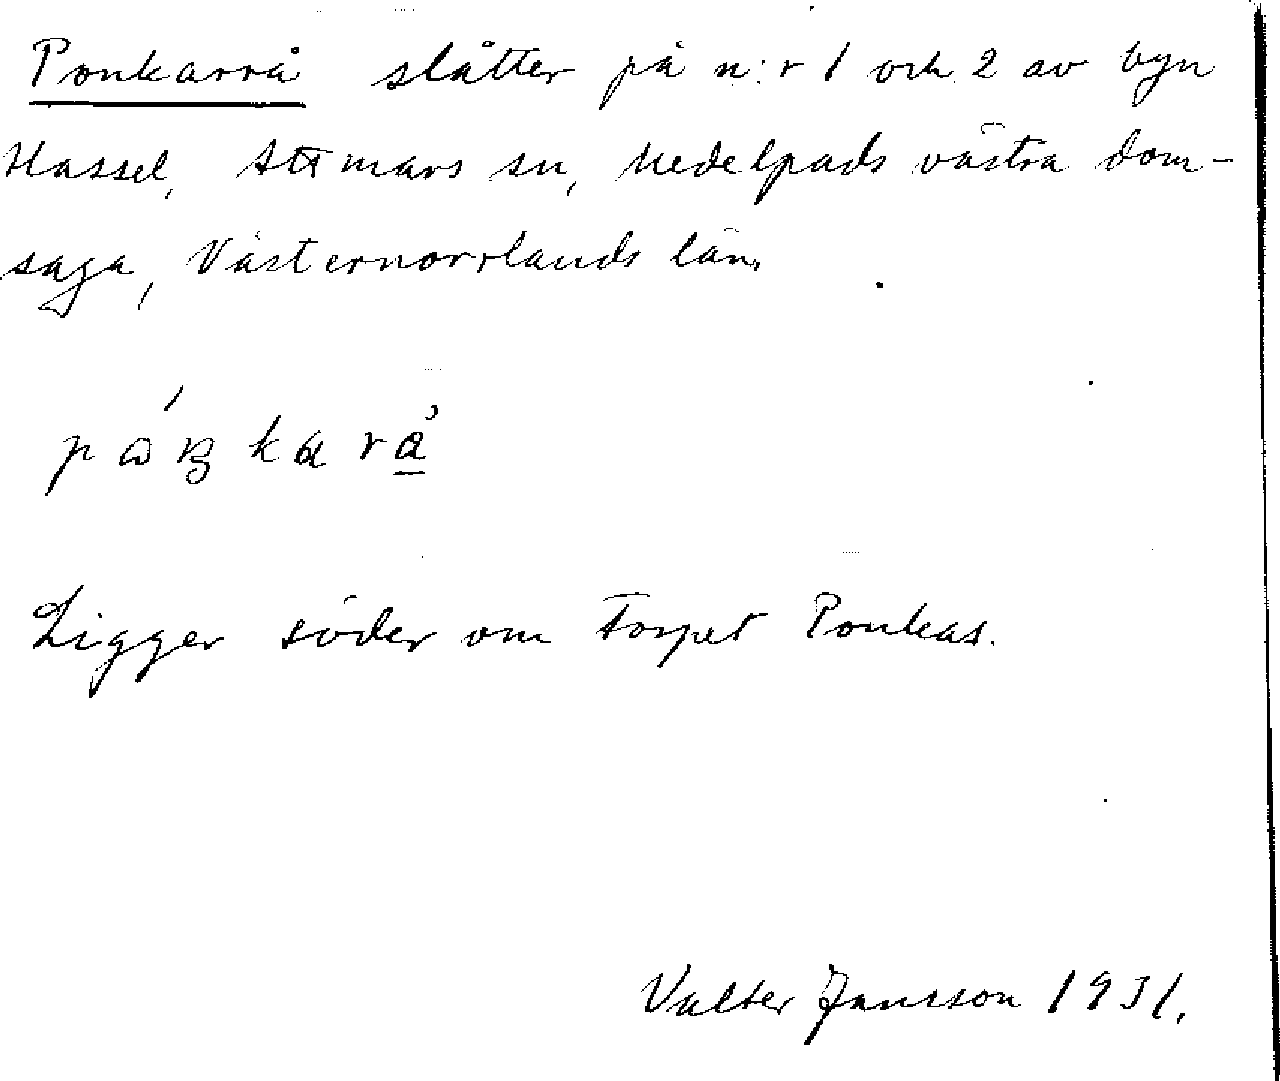 Ponkarrå slåtter på n:r 1 och 2 av byn
Hassel, Attmars sn, Medelpads västra dom-
saga, Västernorrlands län.
Ligger söder om Torpet Ponkas.
Valter Jansson 1931.